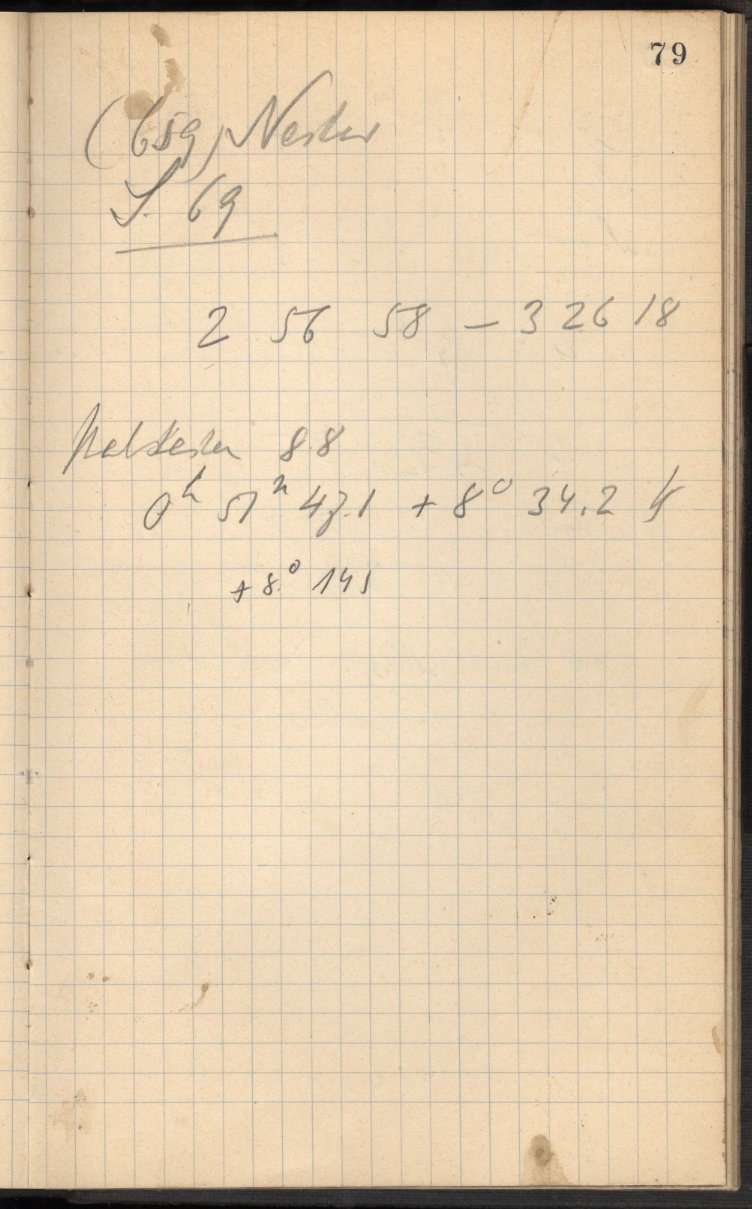 79
(659) Nestor
S. 69
2 56 58 – 3 26 18
Haltestern 8.8
0h 51m 47.1 + 8° 34.2
+ 8° 14.1